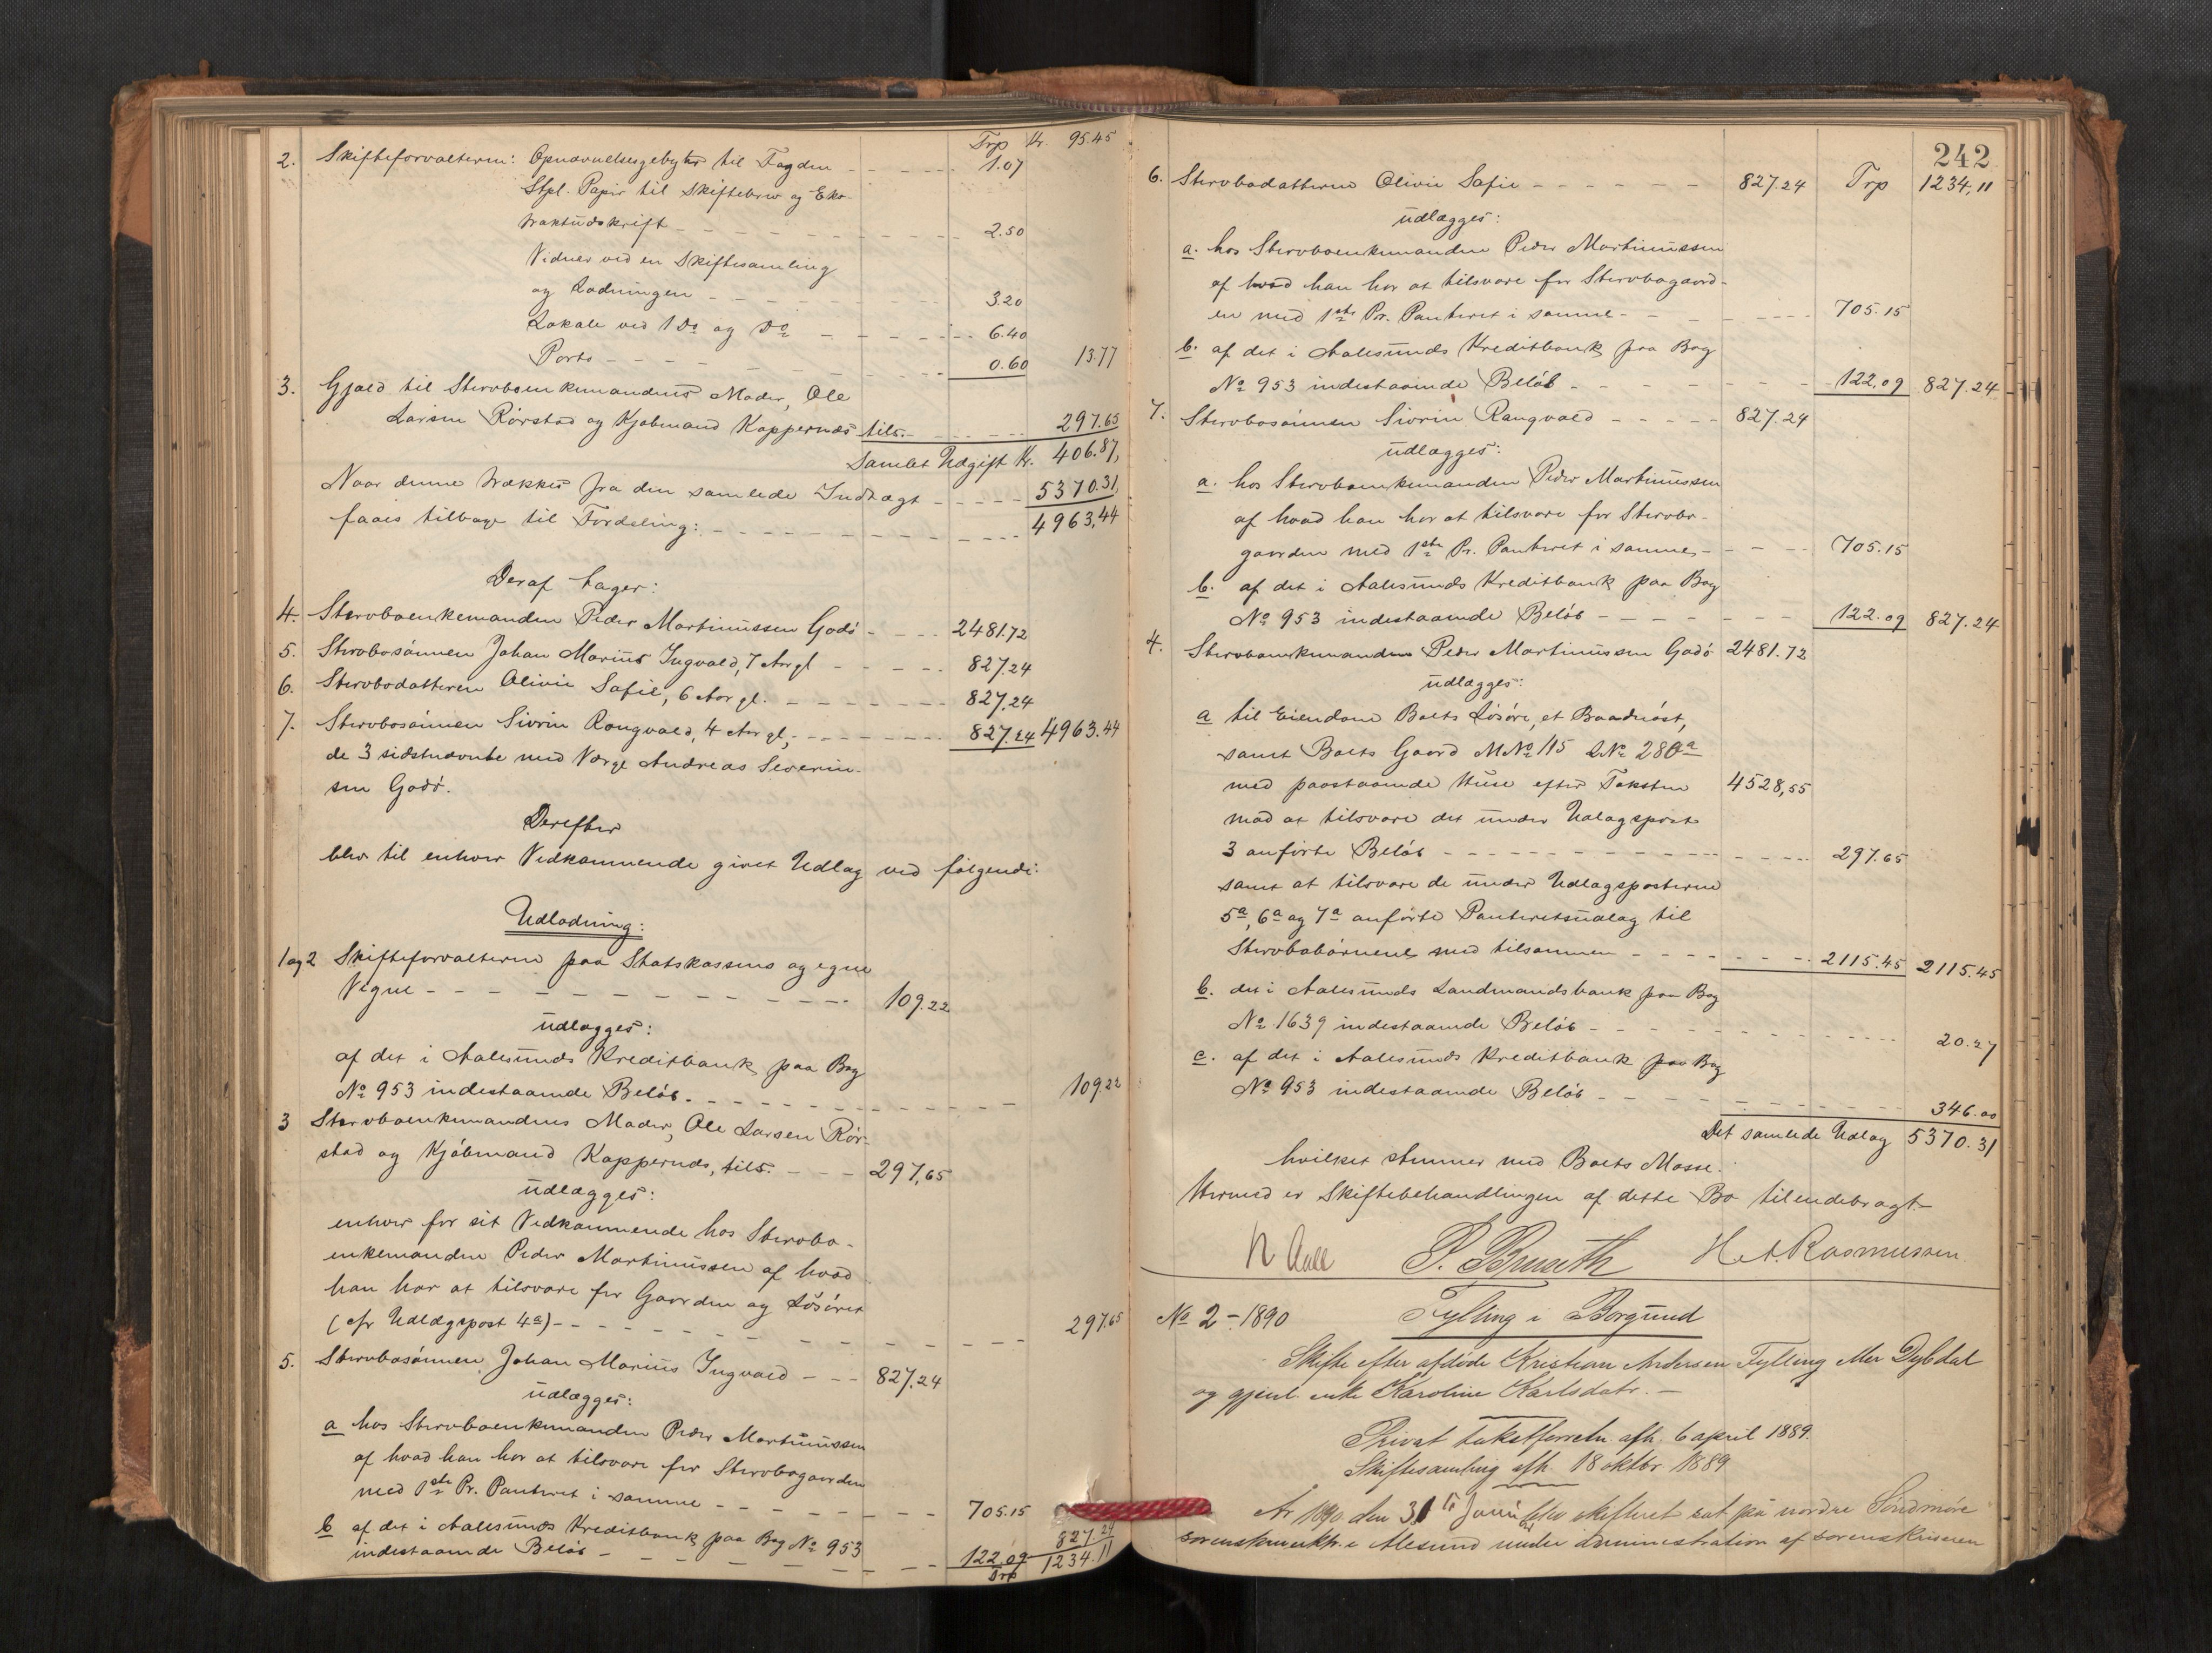 Trp Kr. 95.45
2. Skifteforvalteren: Opnævnelsesgebyhr til Fogden - - - - 1.07
Stpl. Papir til Skiftebrev og Eks-
traktudskrift - - - - - - - - 2.50
Vidner ved en Skiftesamling
og Lodningen - - - - 3.20
Lokale ved 1 Do og Do - - - - - - 6.40
Porto - - - - - - - - 0.60 13.77
3. Gjæld til Sterboenkemandens Moder, Ole
Larsen Rørstad og Kjøbmand Koppernæs tils. - - - - 297.65
Samlet Udgift Kr. 406.87,
Naar denne trækkes fra den samlede Indtægt - - - - 5370.31
faaes tilbage til Fordeling: - - - - - - - - 4963,44
Deraf tager:
4. Sterboenkemanden Peder Martinussen Godø - - - - 2481.72
5. Sterbosønnen Johan Marius Ingvald, 7 Aar gl - - - - 827.24
6. Sterbodatteren Olivie Sofie, 6 Aar gl. - - - - - - 827.24
7. Sterbosønnen Sivrin Rangvald, 4 Aar gl, - - - - - - 827.24 4963.44
de 3 sidstnævnte med Værge Andreas Severin-
sen Godø.
Derefter
blev til enhver Vedkommende givet Udlæg ved følgende:
Udlodning:
1 og 2 Skifteforvalteren paa Statskassens og egne
Vegne - - - - - - - - - - 109.22
udlægges:
af det i Aalesunds Kreditbank paa Bog
No 953 indestaaende Beløb. - - - - - - - - - - 109.22
3 Sterboenkemandens Moder, Ole Larsen Rør-
stad og Kjøbmand Koppernæs, tils. - - - - 297,65
udlægges:
enhver for sit Vedkommende hos Sterbo-
enkemanden Peder Martinussen af hvad
han har at tilsvare for Gaarden og Løsøret
(cfr Udlægspost 4a) - - - - - - - - - - 297.65
5. Sterbosønnen Johan Marius Ingvald - - - 827.24
udlægges:
a hos Sterboenkemanden Peder Martinussen
af hvad han har at tilsvare for Sterbogaarden
med 1ste Pr. Panteret i samme - - - - - - - - 705.15
b af det i Aalesunds Kreditbank paa Bog No 953 827.24
indestaaende Beløb - - - - - - - - 122.09 1234.11
Trp
242
6. Sterbodatteren Olivie Sofie - - - - - - 827.24 Trp 1234,11
udlægges:
a. hos Sterboenkemanden Peder Martinussen
af hvad han har at tilsvare for Sterbogaard-
en med 1ste Pr. Panteret i samme - - - - - - 705.15
b. af det i Aalesunds Kreditbank paa Bog
No 953 indestaaende Beløb - - - - - - - 122,09 827.24
7. Sterbosønnen Sivrin Rangvald - - - - - 827.24
udlægges:
a. hos Sterboenkemanden Peder Martinussen
af hvad han har at tilsvare for Sterbo-
gaarden med 1ste Pr. Panteret i samme, - - - - 705.15
b. af det i Aalesunds Kreditbank paa Bog
No 953 indestaaende Beløb - - - - - - 122.09 827.24
4. Sterboenkemanden Peder Martinussen Godø 2481.72
udlægges:
a til Eiendom Boets Løsøre, et Baadnøst,
samt Boets Gaard MNo 115 LNo 280a
med paastaaende Huse efter Taksten 4528,55
mod at tilsvare det under Udlægspost
3 anførte Beløb - - - - - - - - - - - - - 297.65
samt at tilsvare de under Udlægsposterne
5a, 6a og 7a anførte Panteretsudlæg til
Sterbobørnene med tilsammen - - - - - - - 2115.45 2115.45
b. det i Aalesunds Landmandsbank paa Bog
No 1639 indestaaende Beløb - - - - - - - - 20.27
c. af det i Aalesunds Kreditbank paa Bog
No 953 indestaaende Beløb - - - - - - - - 346.00
Det samlede Udlæg 5370.31
hvilket stemmer med Boets Masse.
Hermed er Skiftebehandlingen af dette Bo tilendebragt
N Aall P. Bruseth H. A. Rasmussen
No 2 - 1890 Fylling i Borgund
Skifte efter afdøde Kristian Andersen Fylling eller Dybdal
og gjenl. enke Karoline Karlsdatr. -
Privat takstforretn. afh. 6 april 1889.
Skiftesamling afh. 18 oktbr. 1889
År 1890 den 31 blev skifteret sat på nordre Søndmøre
sorenskriverktr. i Ålesund under administration af sorenskriveren